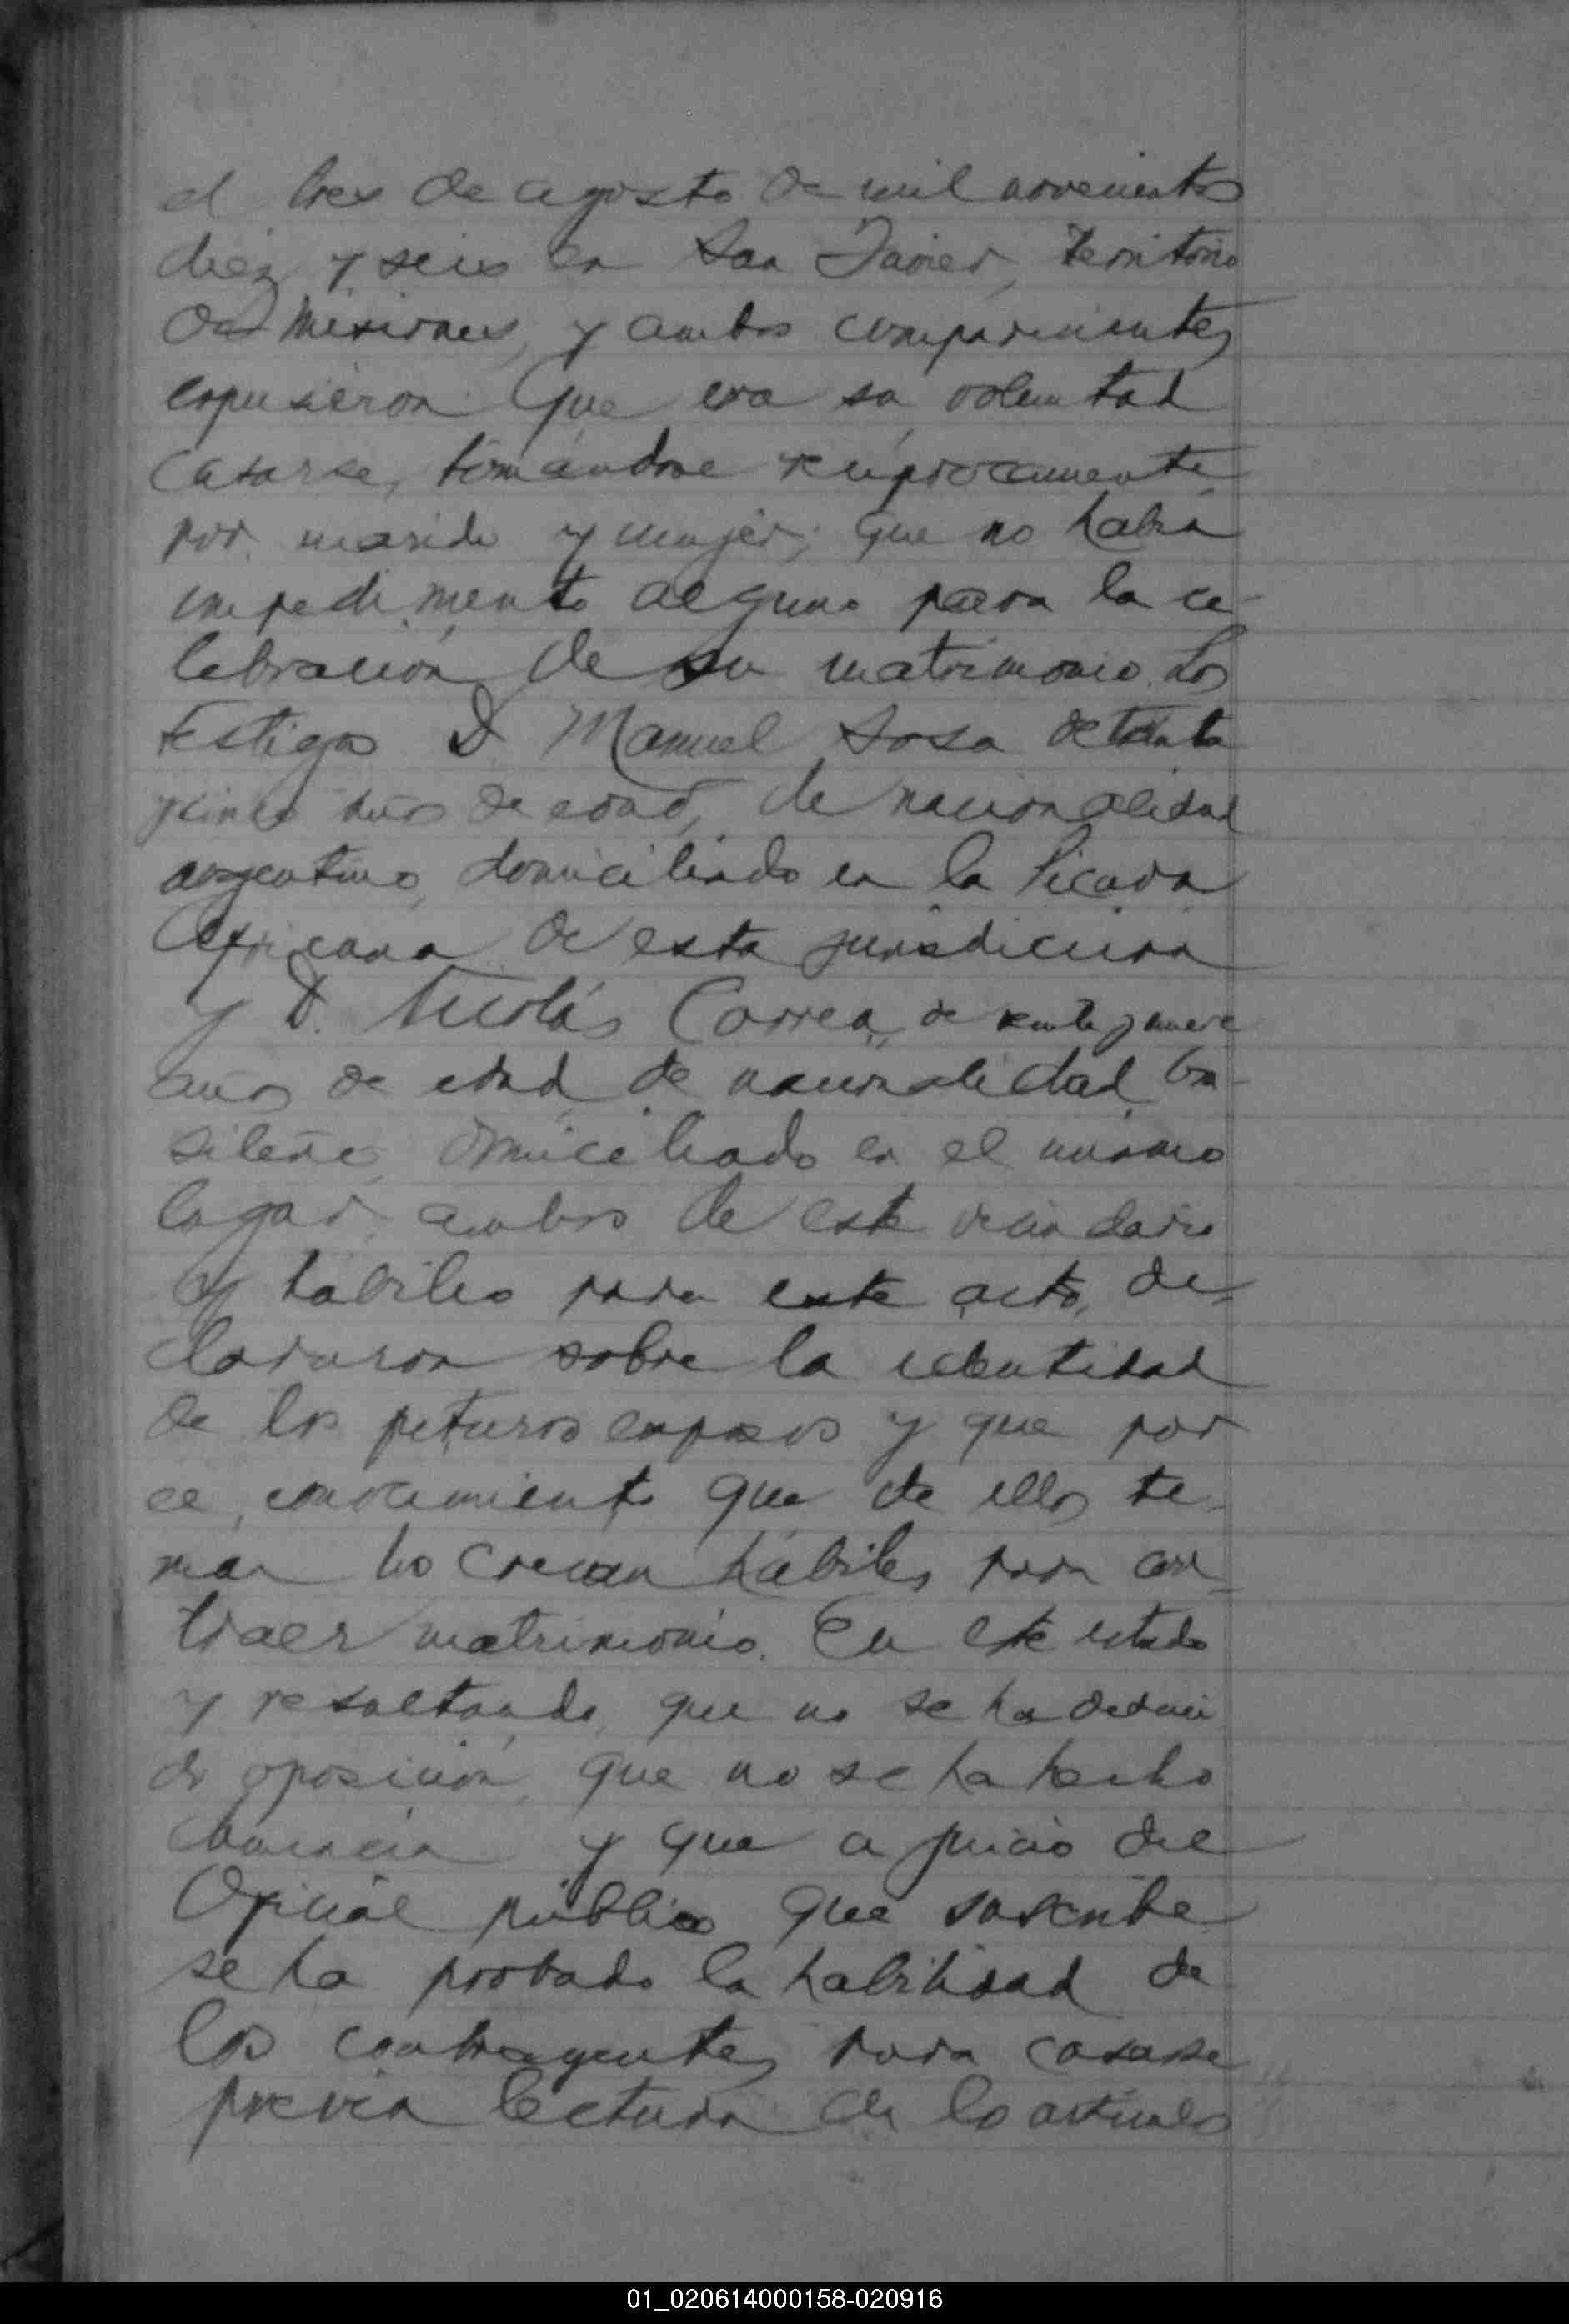 el tres de agosto de mil novecientos
diez y seis en San Javier, Territorio
de Misiones, y ambos comparecientes
expusieron: Que era su voluntad
casarse, tomándose recíprocamente
por marido y mujer; que no había
impedimento alguno para la ce-
lebración de su matrimonio. Los
testigos D. Manuel Sosa de treinta
y cinco años de edad, de nacionalidad
argentino, domiciliado en la Picada
Africana de esta jurisdiccion
y D. Nicolás Correa, de veinte y nueve
años de edad de nacionalidad bra-
sileño, domiciliado en el mismo
lugar, ambos de este vecindario
y hábiles para este acto, de-
clararon sobre la identidad
de los futuros esposos y que por
el conocimiento que de ellos te-
nian los creian hábiles para con-
traer matrimonio. En este estado
y resultando, que no se ha deduci
do oposición, que no se ha hecho
denuncia y que a juicio del
Oficial público que suscribe
se ha probado la habilidad de
los contrayentes para casarse
previa lectura de los artículos
01_020614000158-020916